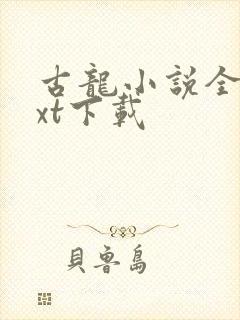 古龍小説全
xt下載
貝魯島